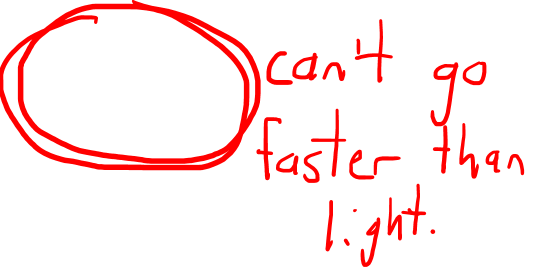 can't go
faster than
light.